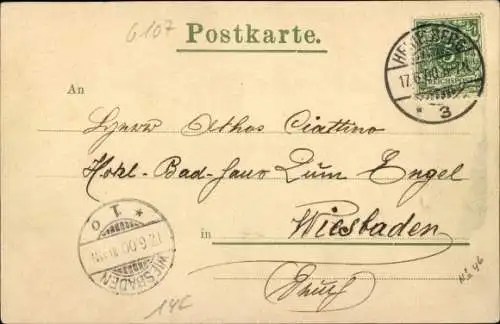 6107
Postkarte.
HEIDELBERG
17.6.00
* 3
REICHSPOST
An
Herrn Athos Ciattino
Hotel-Bad-Haus Zum Engel
in Wiesbaden
* 1 O
17.6.00
WIESBADEN
146